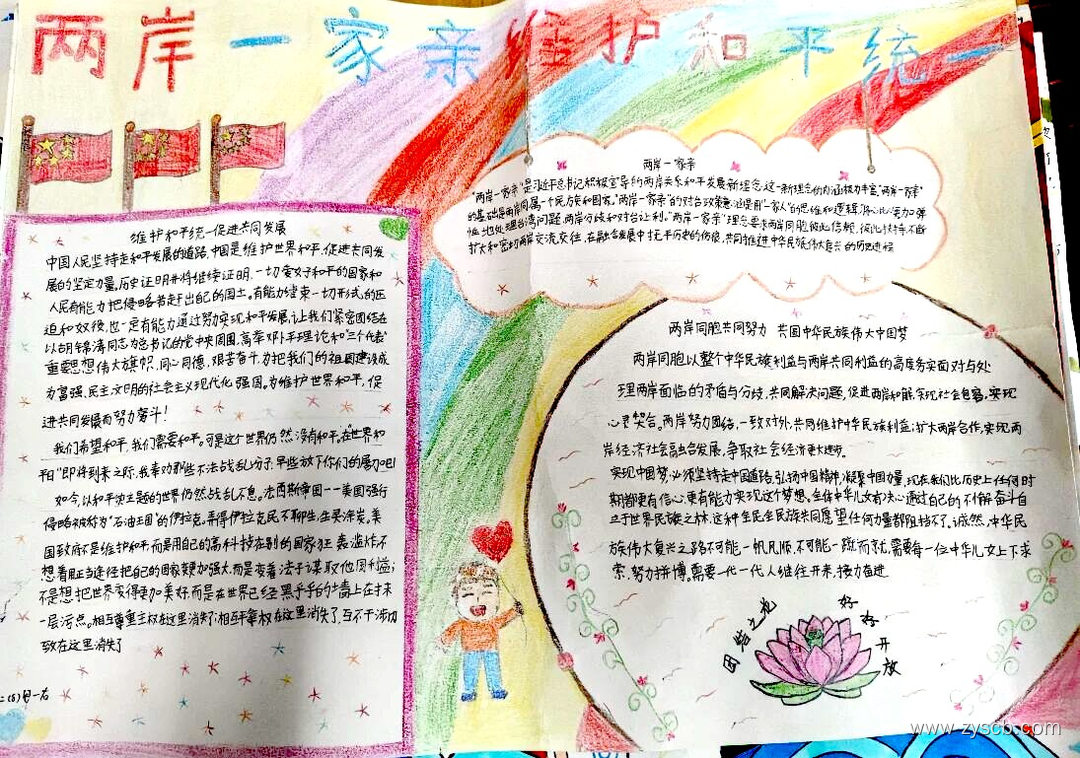 两岸一家亲维护和平统一
维护和平统一促进共同发展
中国人民坚持走和平发展的道路,中国是维护世界和平,促进共同发
展的坚定力量。历史证明并将继续证明,一切爱好和平的国家和
人民有能力把侵略者赶出自己的国土。有能力结束一切形式的压
迫和奴役,也一定有能力通过努力实现和平发展,让我们紧密团结在
以胡锦涛同志为总书记的党中央周围,高举邓小平理论和“三个代表”
重要思想伟大旗帜,同心同德,艰苦奋斗,为把我们的祖国建设成
为富强、民主、文明的社会主义现代化强国,为维护世界和平,促
进共同发展而努力奋斗!
我们希望和平,我们需要和平,可是这个世界仍然没有和平,在“世界和
平日”即将到来之际,我奉劝那些不法战乱分子,早些放下你们的屠刀吧!
如今,以和平为主题的世界仍然战乱不息。法西斯帝国——美国强行
侵略被称为“石油王国”的伊拉克,弄得伊拉克民不聊生,生灵涂炭,美
国政府不是维护和平,而是用自己的高科技在别的国家狂轰滥炸不
想着用正当途径把自己的国家变加强大,而是变着法子谋取他国利益;
不是想把世界变得更加美好,而是在世界已经黑乎乎的墙上在抹
一层污点。相互尊重主权在这里消失了,相互尊重权在这里消失了,互不干涉内
政在这里消失了
二(5)
两岸一家亲
“两岸一家亲”是习近平总书记积极宣导的两岸关系和平发展新理念,这一新理念的内涵极为丰富,“两岸一家亲”
的基础是两岸同属一个民族和国家。“两岸一家亲”的对台政策意涵是用“一家人”的思维和逻辑,将心比心更加弹
性地处理台湾问题,两岸分歧和对台让利。“两岸一家亲”理念要求两岸同胞彼此信赖,彼此扶持不断
扩大和密切两岸交流交往,在融合发展中抚平历史的伤痕,共同推进中华民族伟大复兴的历史进程
两岸同胞共同努力 共圆中华民族伟大中国梦
两岸同胞以整个中华民族利益与两岸共同利益的高度务实面对与处
理两岸面临的矛盾与分歧,共同解决问题,促进两岸和解,实现社会包容,实现
心灵契合,两岸努力团结,一致对外,共同维护中华民族利益;扩大两岸合作,实现两
岸经济社会融合发展,争取社会经济更大进步。
实现中国梦,必须坚持走中国道路,弘扬中国精神,凝聚中国力量,现在我们比历史上任何时
期都更有信心,更有能力实现这个梦想。全体中华儿女有决心通过自己的不懈奋斗自
立于世界民族之林,这种全民全民族共同愿望任何力量都阻挡不了。诚然,中华民
族伟大复兴之路不可能一帆风顺,不可能一蹴而就,需要每一位中华儿女上下求
索,努力拼搏,需要一代一代人继往开来,接力奋进
团结之花
好好开放
www.zyscb.com